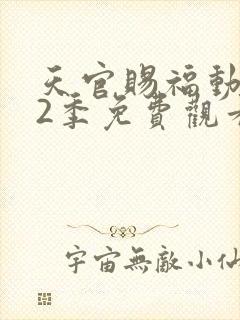 天官賜福動
2季免費觀
宇宙無敵小仙